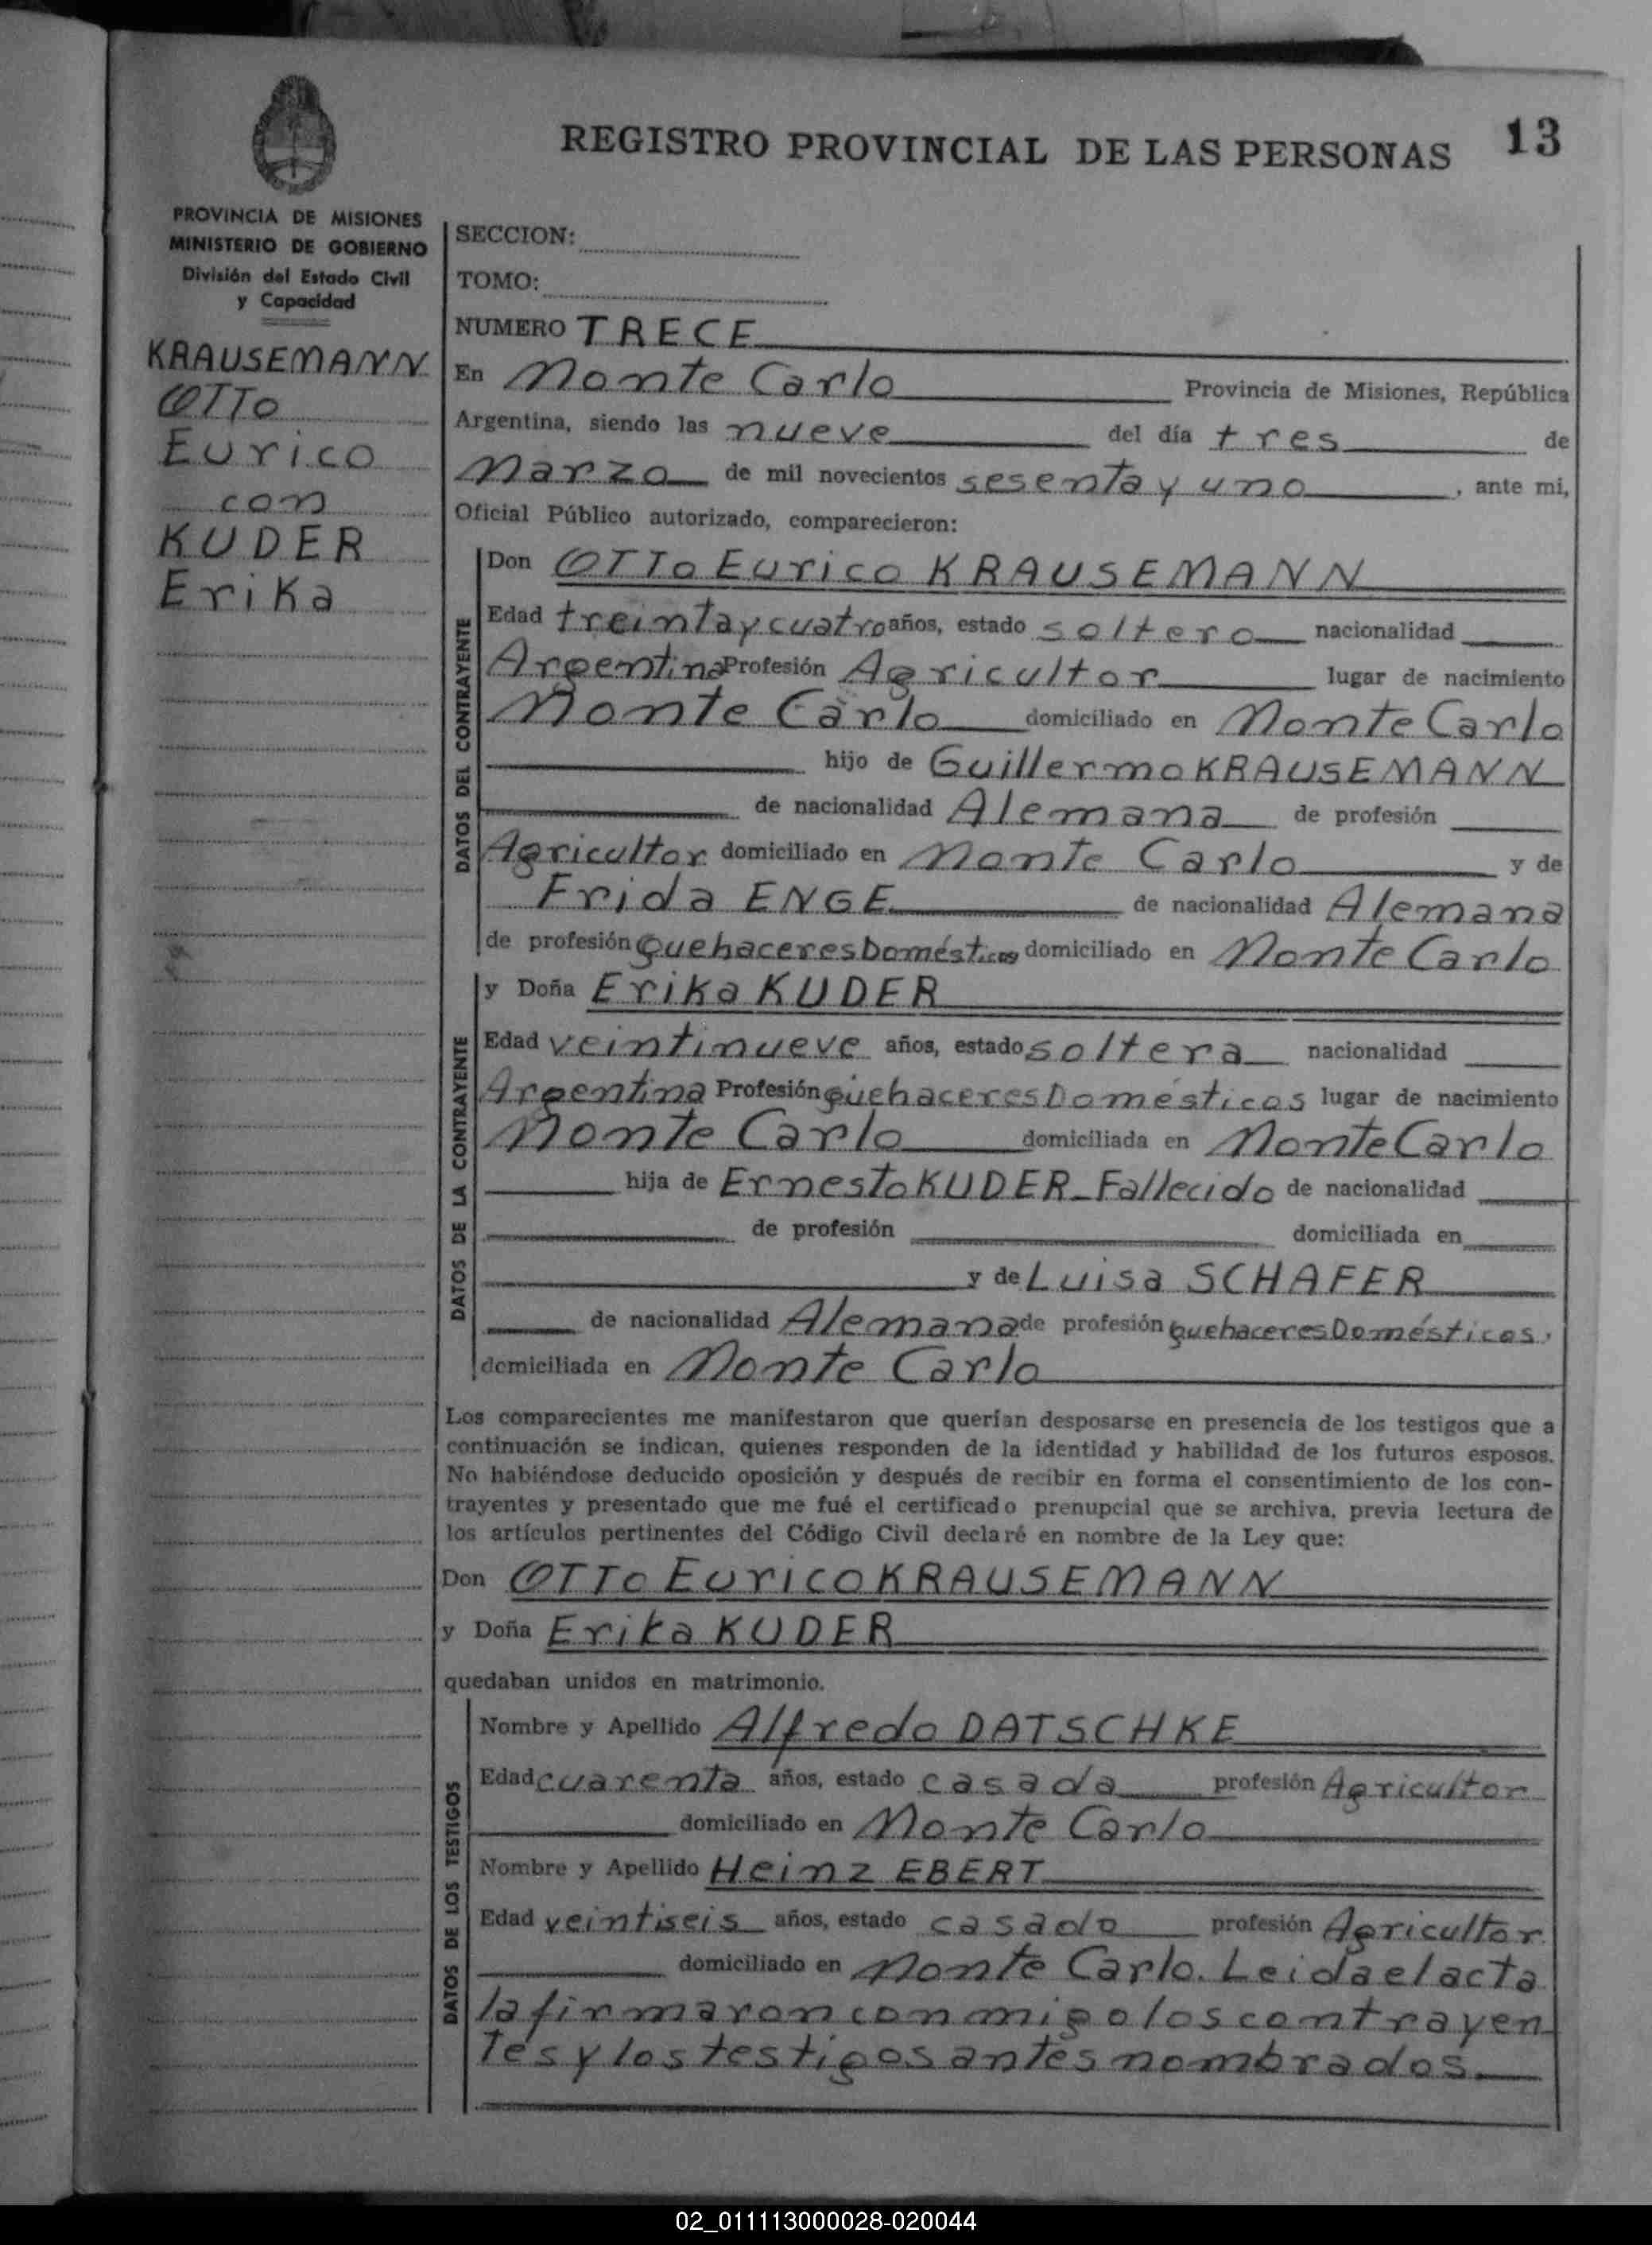 REGISTRO PROVINCIAL DE LAS PERSONAS 13
PROVINCIA DE MISIONES
MINISTERIO DE GOBIERNO
División del Estado Civil
y Capacidad
KRAUSEMANN
OTTO
Eurico
con
KUDER
Erika
SECCION:
TOMO:
NUMERO TRECE
En Monte Carlo Provincia de Misiones, República
Argentina, siendo las nueve del día tres de
Marzo de mil novecientos sesenta y uno, ante mi,
Oficial Público autorizado, comparecieron:
DATOS DEL CONTRAYENTE
Don OTTO Eurico KRAUSEMANN
Edad treinta y cuatro años, estado soltero nacionalidad
Argentina Profesión Agricultor lugar de nacimiento
Monte Carlo domiciliado en Monte Carlo
hijo de Guillermo KRAUSEMANN
de nacionalidad Alemana de profesión
Agricultor domiciliado en Monte Carlo y de
Frida ENGE de nacionalidad Alemana
de profesión Quehaceres Domésticos domiciliado en Monte Carlo
DATOS DE LA CONTRAYENTE
y Doña Erika KUDER
Edad veintinueve años, estado soltera nacionalidad
Argentina Profesión quehaceres Domésticos lugar de nacimiento
Monte Carlo domiciliada en Monte Carlo
hija de Ernesto KUDER - Fallecido de nacionalidad
de profesión domiciliada en
y de Luisa SCHAFER
de nacionalidad Alemana de profesión quehaceres Domésticos,
domiciliada en Monte Carlo
Los comparecientes me manifestaron que querían desposarse en presencia de los testigos que a
continuación se indican, quienes responden de la identidad y habilidad de los futuros esposos.
No habiéndose deducido oposición y después de recibir en forma el consentimiento de los con-
trayentes y presentado que me fué el certificado prenupcial que se archiva, previa lectura de
los artículos pertinentes del Código Civil declaré en nombre de la Ley que:
Don OTTO Eurico KRAUSEMANN
y Doña Erika KUDER
quedaban unidos en matrimonio.
DATOS DE LOS TESTIGOS
Nombre y Apellido Alfredo DATSCHKE
Edad cuarenta años, estado casada profesión Agricultor
domiciliado en Monte Carlo
Nombre y Apellido Heinz EBERT
Edad veintiseis años, estado casado profesión Agricultor
domiciliado en Monte Carlo. Leida el acta
la firmaron conmigo los contrayen
tes y los testigos antes nombrados.
02_011113000028-020044